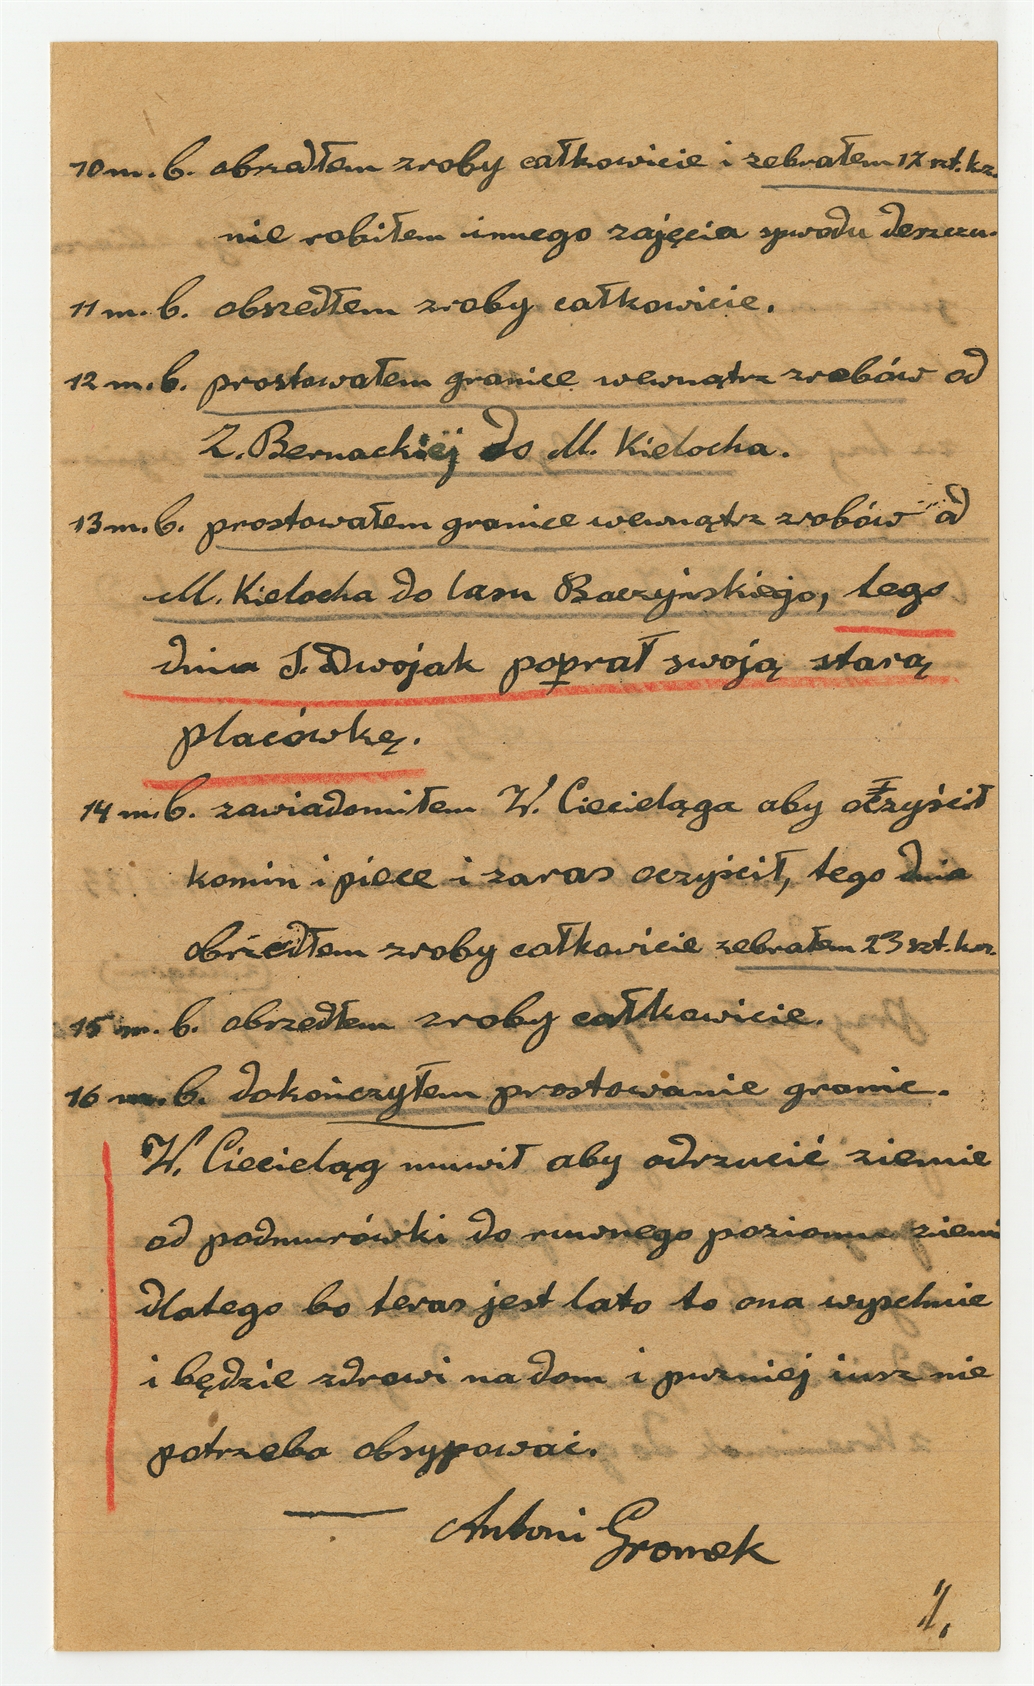 10 m. b. obszedłem zroby całkowicie i zebrałem 17 szt. kz.
nie robiłem innego zajęcia spwodu deszczu.
11 m. b. obszedłem zroby całkowicie.
12 m. b. prostowałem granice wewnątrz zrobów od
Z. Bernackiej do M. Kielocha.
13 m. b. prostowałem granice wewnątrz zrobów od
M. Kielocha do lasu Baczyńskiego, tego
dnia J. Dwojak poprał swoją starą
placówkę.
14 m. b. zawiadomiłem W. Ciecieląga aby oczyścił
komin i piece i zaras oczyścił, tego dnia
obrzedłem zroby całkowicie zebrałem 23 szt. kz.
15 m. b. obrzedłem zroby całkowicie.
16 m. b. dokończyłem prostowanie granic.
W. Ciecieląg muwił aby odrzucić ziemie
od podmurówki do ruwnego poziomu ziemi
dlatego bo teras jest lato to ona wyschnie
i będzie zdrowi na dom i puzniej iusz nie
potrzeba obsypować.
Antoni Gromek